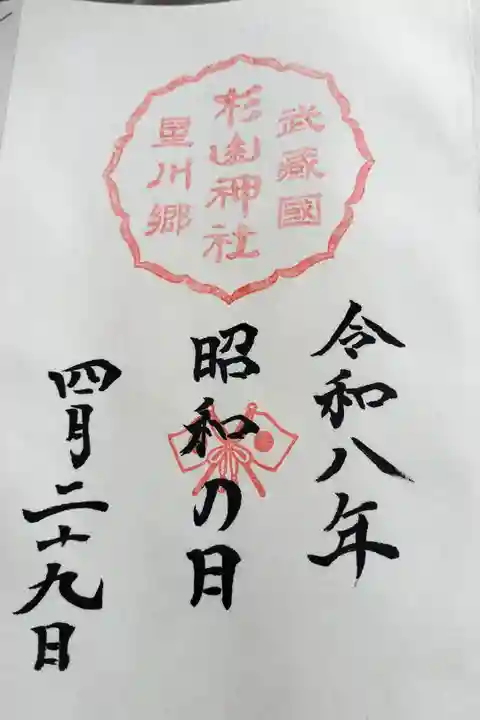 武蔵國
杉山神社
星川郷
令和八年
昭和の日
四月二十九日